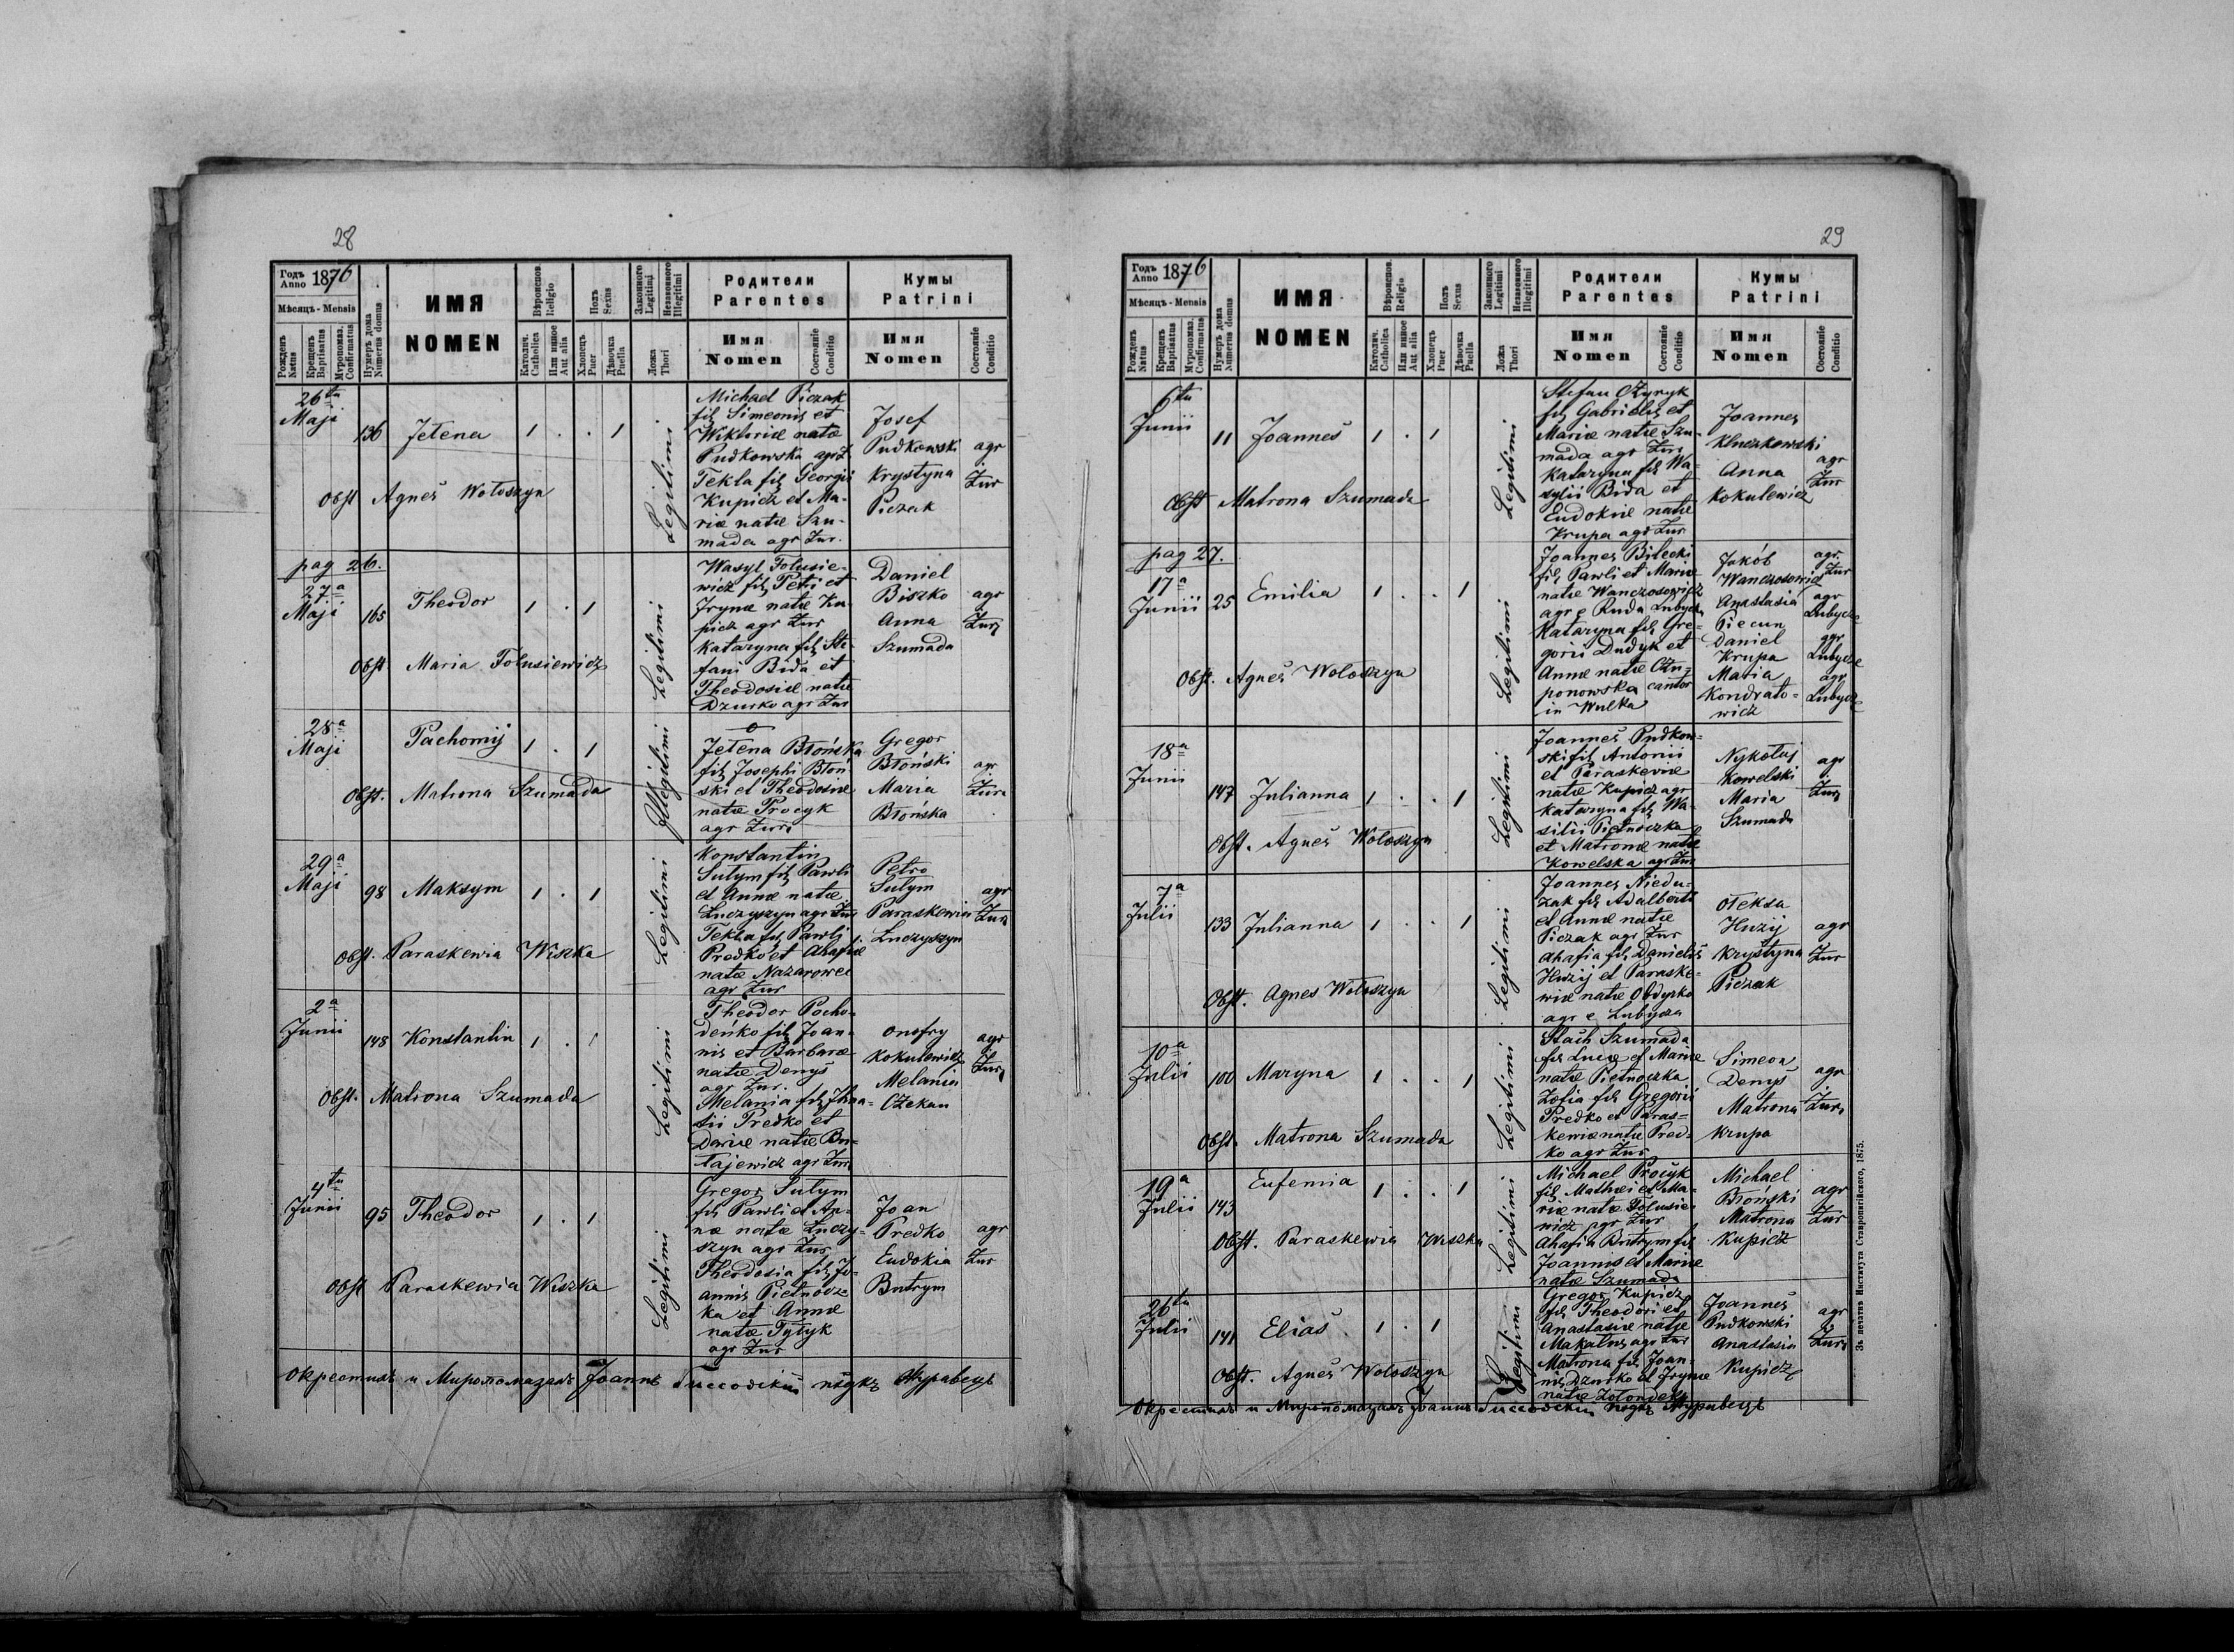 28
Годъ Anno 1876
Мѣсяцъ - Mensis
Рожденъ Natus
Крещенъ Baptisatus
Муропомаз. Confirmatus
Нумеръ дома Numerus domus
ИМЯ
NOMEN
Вѣроиспов. Religio
Католич. Catholica
Или инное Aut alia
Полъ Sexus
Хлопецъ Puer
Дѣвочка Puella
Законного Legitimi
Незаконного Illegitimi
Ложа Thori
Родители
Parentes
Имя
Nomen
Состояніе Conditio
Кумы
Patrini
Имя
Nomen
Состояніе Conditio
26ta
Maji
136 Jełena 1 . . 1
Obst Agnes Wołoszyn
Legitimi
Michael Piczak
fil Simeonis et
Wiktoriæ natæ
Pudkowska agr Ż
Tekla fil Georgii
Kupicz et Ma-
riæ natæ Szu-
mada agr Żur.
Josef
Pudkowski
Krystyna
Piczak
agr
Żur
pag 26.
27a
Maji 165 Theodor 1 . 1
Obst Maria Tołusiewicz
Legitimi
Wasyl Tołusie-
wicz fil Petri et
Irynæ natæ Ku-
picz agr Żur
Kataryna fil Ste-
fani Bida et
Theodosiæ natæ
Dzurko agr Żur
Daniel
Biszko
Anna
Szumada
agr
Żur
28a
Maji
Pachomij 1 . 1
Obst. Matrona Szumada
Illegitimi
0
Jełena Błońska
fil Josephi Błoń-
ski et Theodosiæ
natæ Procyk
agr Żur
Gregor
Błoński
Maria
Błońska
agr
Żur
29a
Maji 98 Maksym 1 . 1
Obst. Paraskewia Wiszka
Legitimi
Konstantin
Sutym fil Pawli
et Annæ natæ
Łuczyszyn agr Żur
Tekla fil Pawli
Predko et Ahafiæ
natæ Nazarowec
agr Żur
Petro
Sutym
Paraskewia
Łuczyszyn
agr
Żur
2a
Junii
148 Konstantin 1 . 1
Obst. Matrona Szumada
Legitimi
Theodor Pocho-
deńko fil Joan-
nis et Barbaræ
natæ Denys
agr Żur.
Melania fil
Predko et
Dariæ natæ Bu-
łajewicz agr Żur
Onofry
Kokulewicz
Melania
Czekan
agr
Żur
4ta
Junii
95 Theodor 1 . 1
Obst Paraskewia Wiszka
Legitimi
Gregor Sutym
fil Pawli et An-
næ natæ Łuczy-
szyn agr Żur
Theodosia fil Jo-
annis Pietnocz-
ka et Annæ
natæ Tytyk
agr Żur
Joan
Predko
Eudokia
Butrym
agr
Żur
Окрестилъ и Миропомазалъ Іоаннъ
29
Годъ Anno 1876
Мѣсяцъ - Mensis
Рожденъ Natus
Крещенъ Baptisatus
Муропомаз. Confirmatus
Нумеръ дома Numerus domus
ИМЯ
NOMEN
Вѣроиспов. Religio
Католич. Catholica
Или инное Aut alia
Полъ Sexus
Хлопецъ Puer
Дѣвочка Puella
Законного Legitimi
Незаконного Illegitimi
Ложа Thori
Родители
Parentes
Имя
Nomen
Состояніе Conditio
Кумы
Patrini
Имя
Nomen
Состояніе Conditio
6ta
Junii
11 Joannes 1 . 1
Obst Matrona Szumada
Legitimi
Stefan Czyryk
fil Gabrielis et
Mariæ natæ Szu-
mada agr Żur
Kataryna fil Wa-
sylii Bida et
Eudokiæ natæ
Krupa agr Żur
Joannes
Kluczkowski
Anna
Kokulewicz
agr
Żur
pag 27.
17a
Junii 25 Emilia 1 . . 1
Obst. Agnes Wołoszyn
Legitimi
Joannes Biłecki
fil Pawli et Mariæ
natæ Wanczosowicz
agr e Ruda Lubycz.
Kataryna fil Gre-
gorii Dudyk et
Annæ natæ Czu-
ponowska cantor
in Wulka
Jakób
Wanczosowicz
Anastasia
Piecun
Daniel
Krupa
Maria
Kondrato-
wicz
agr
Żur
agr
Lubycze
agr
Lubycze
agr
Lubycze
18a
Junii
147 Julianna 1 . . 1
Obst. Agnes Wołoszyn
Legitimi
Joannes Pudkow-
ski fil Antonii
et Paraskewiæ
natæ Kupicz agr
Kataryna fil Wa-
silii Pietnoczka
et Matronæ natæ
Kowelska agr Żur
Nykołaj
Kowelski
Maria
Szumada
agr
Żur
7a
Julii
133 Julianna 1 . . 1
Obst. Agnes Wołoszyn
Legitimi
Joannes Niedu-
zak fil Adalberti
et Annæ natæ
Piczak agr Żur
Ahafia fil Danielis
Huzij et Paraske-
wiæ natæ
agr e Lubycza
Ołeksa
Huzij
Krystyna
Piczak
agr
Żur
10a
Julii 100 Maryna 1 . . 1
Obst. Matrona Szumada
Legitimi
Stach Szumada
fil Lucæ et Mariæ
natæ Pietnoczka
Zofia fil Gregorii
Predko et Paras-
kewiæ natæ Pred-
ko agr Żur
Simeon
Denys
Matrona
Krupa
agr
Żur
19a
Julii 143
Eufemia 1 . . 1
Obst. Paraskewia Wiszka
Legitimi
Michael Procyk
fil Mathæi et Ma-
riæ natæ Tołusie-
wicz agr Żur
Ahafia Butrym fil
Joannis et Mariæ
natæ Szumada
Michael
Błoński
Matrona
Kupicz
agr
Żur
26ta
Julii
141 Elias 1 . 1
Obst. Agnes Wołoszyn
Legitimi
Gregor Kupicz
fil Theodori et
Anastasiæ natæ
Makałus agr Żur
Matrona fil Joan-
nis Dzurko et Irynæ
natæ
Joannes
Pudkowski
Anastasia
Kupicz
agr
Żur
Окрестилъ и Миропомазалъ Іоаннъ
Зъ печатнѣ Института Ставропигійского, 1875.